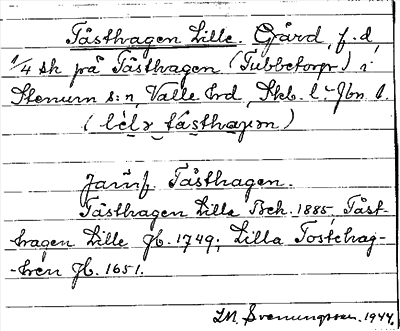 Tåsthagen Lille. Gård, f. d.
1/4 sk på Tåsthagen (Tubbetorp) i
Stenum s:n, Valle hd, Skb. l. Jbn l.
(
Jämf. Tåsthagen.
Tåsthagen Lilla Bek. 1885, Tåst-
hagen Lille Jb. 1749; Lilla Tostehag-
-hen Jb. 1651.
I.M. Svenungsson. 1944.